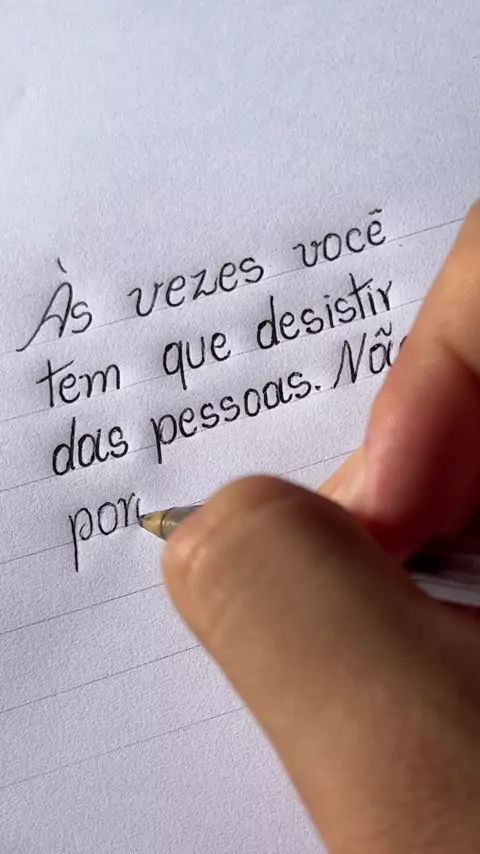 Às vezes você
tem que desistir
das pessoas. Não
por